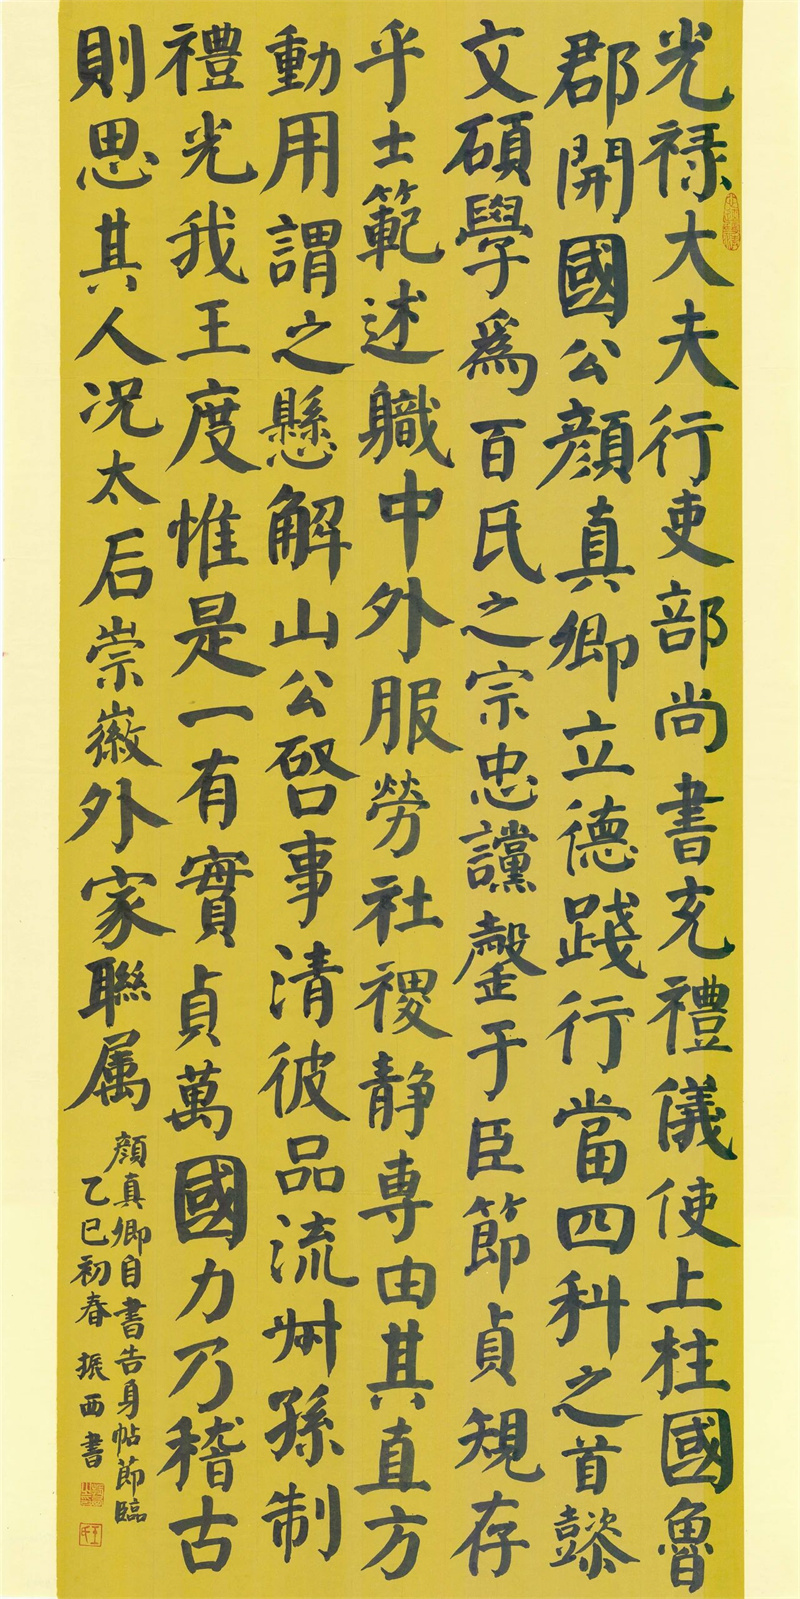 光禄大夫行吏部尚書充禮儀使上柱國魯
郡開國公顏真卿立德踐行當四科之首懿
文碩學為百氏之宗忠讜罄于臣節貞規存
乎士範述職中外服勞社稷静專由其直方
動用謂之懸解山公啓事清彼品流叔孫制
禮光我王度惟是一有實貞萬國力乃稽古
則思其人况太后崇徽外家聯属
顏真卿自書告身帖節臨
乙巳初春 振西書